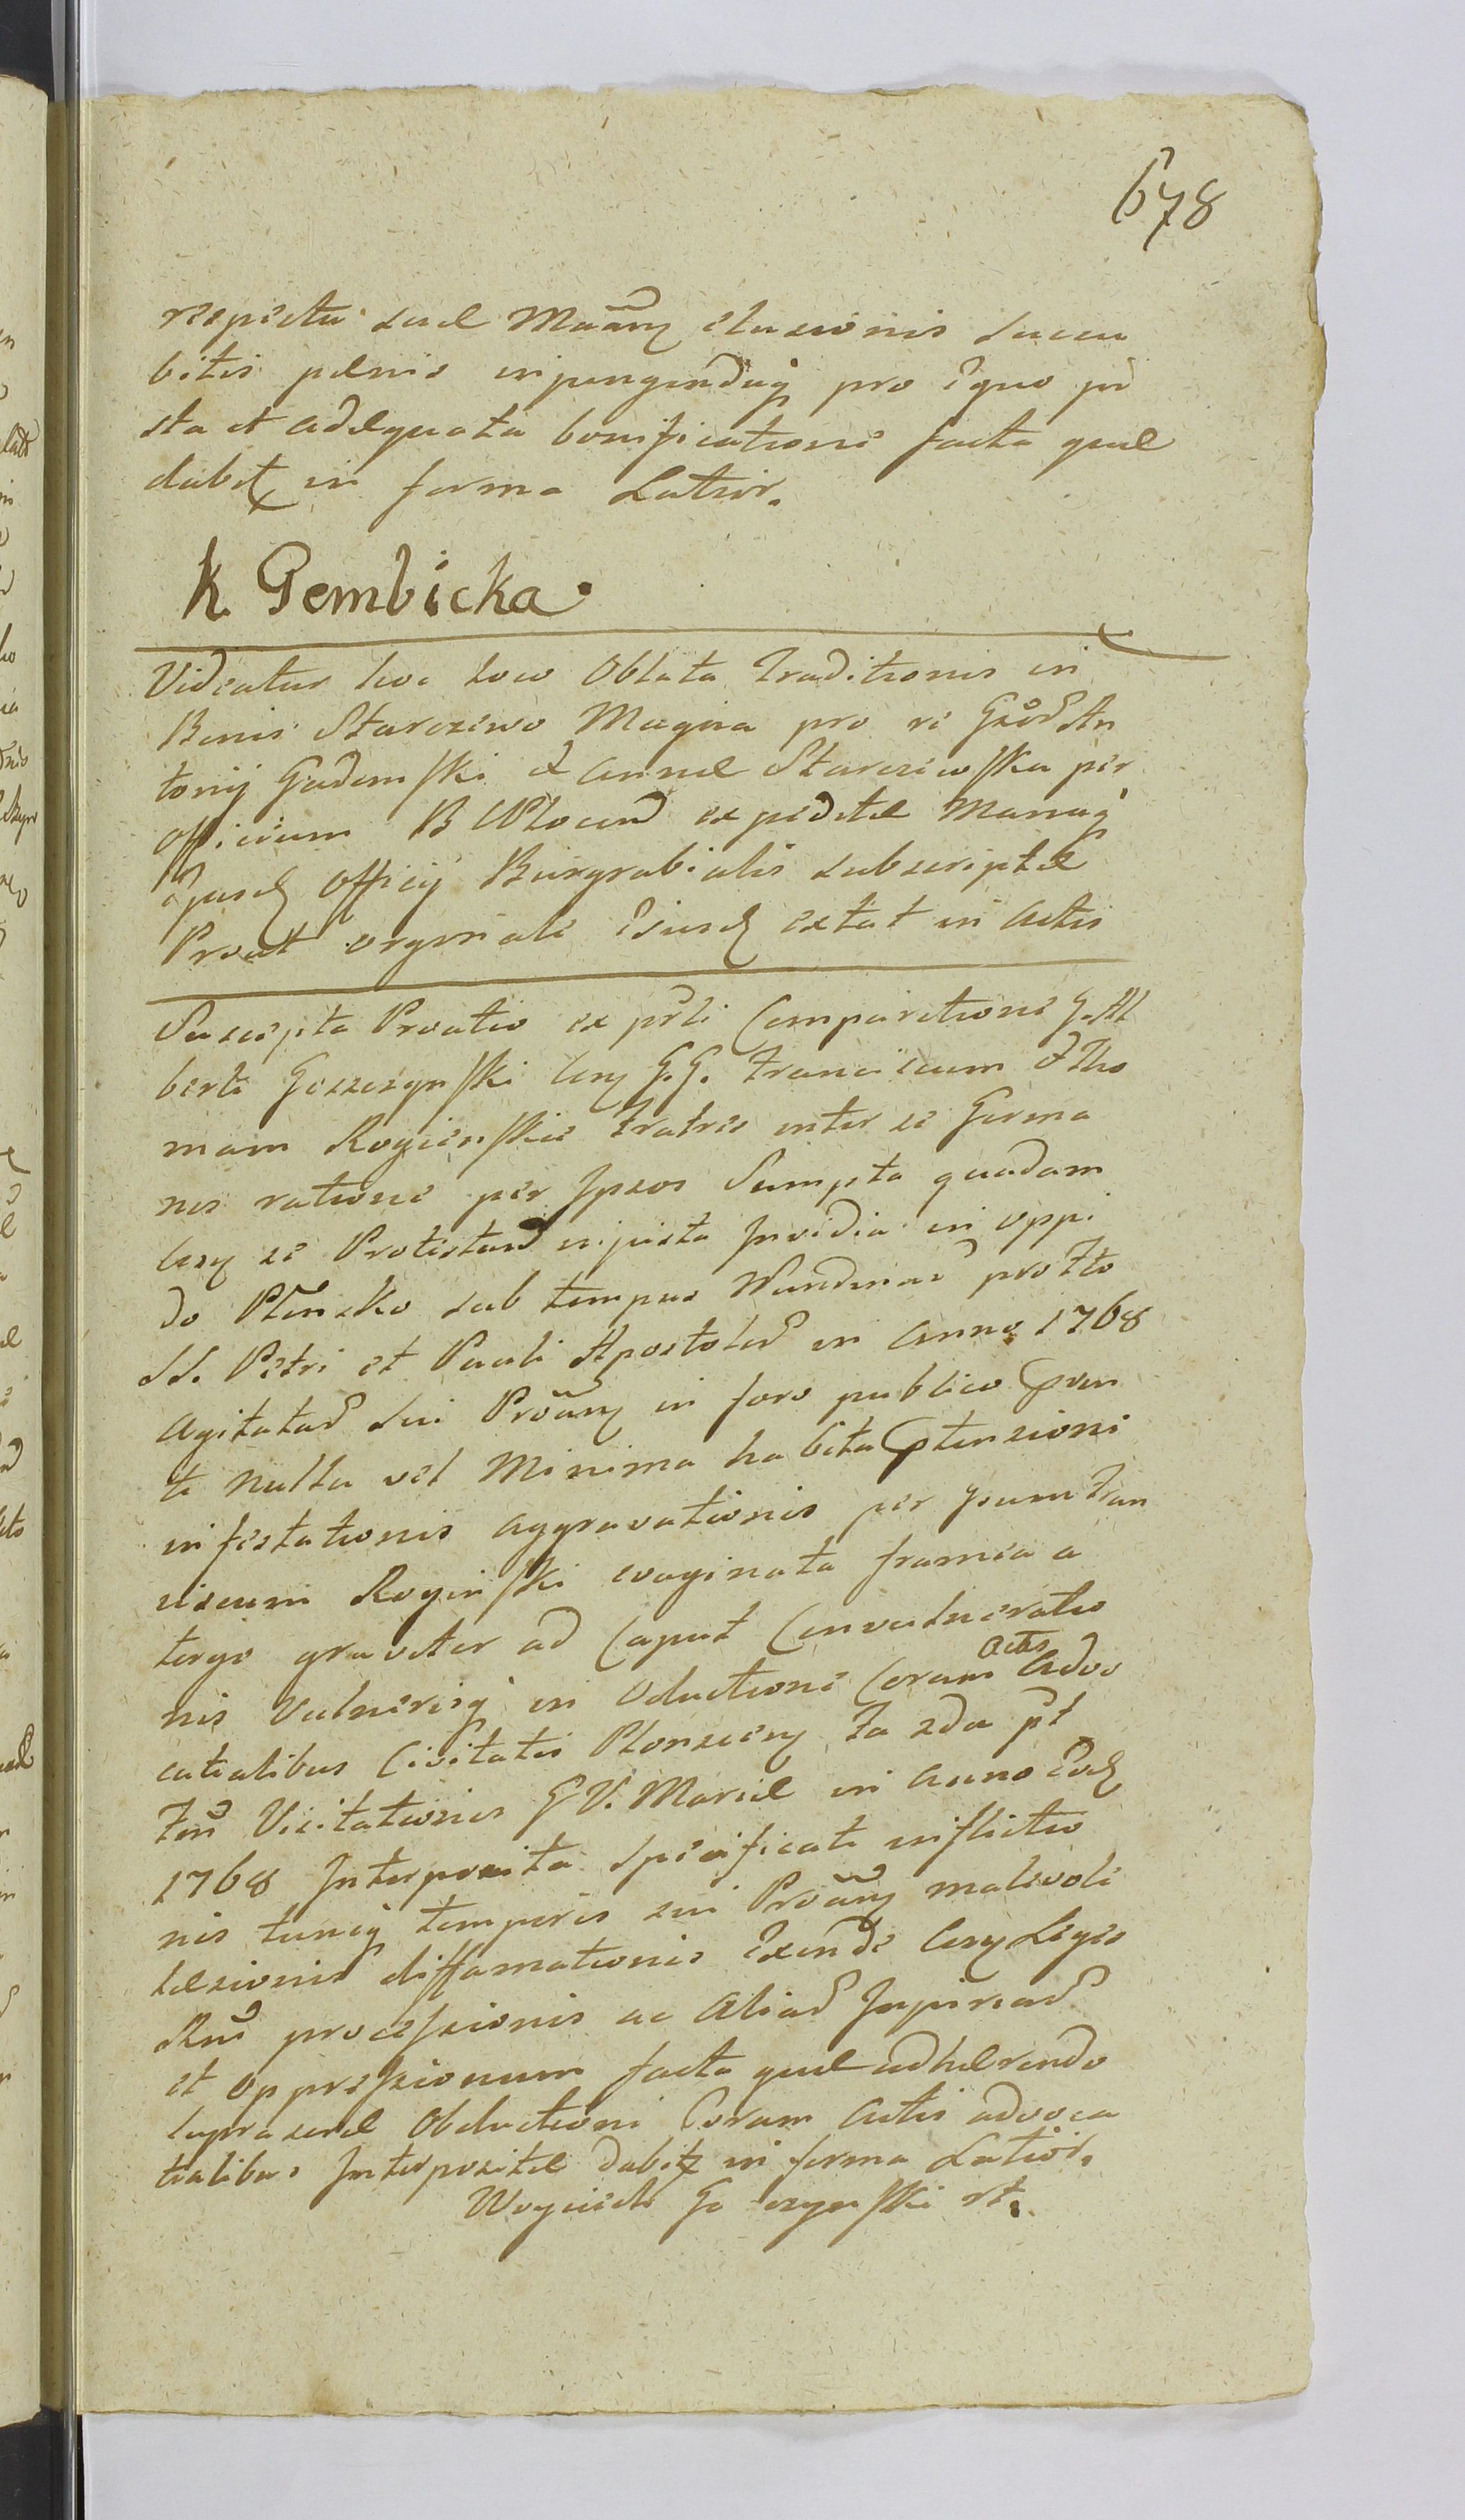 678
respectu suæ Maãm elusionis succu
bitis pœnis injungendisq pro Equo ju
sta et adæquata bonificatione facta quæ
dabit in forma Latior.
K Gembicka
Videatur hoc loco Oblata Traditionis in
Bonis Starczewo Magna pro re Gsõd An
tonij Gadomski et Annæ Starczewska per
Officium B Plocen expeditæ Manuq
Ejusd Officij Burgrabialis subscriptæ
Prout orginale Ejusd extat in Actis
Suscepta Protio ex prti Comparitione G. Al
berti Goszczynski con G.G. Franciscum et Tho
mam Rogienskie Fratres inter se Germa
nos ratione per Ipsos Sumpta quadam
con se Protestan injusta Invidia in oppi
do Plonsko sub tempus Nundinar pro Fto
SS. Petri et Pauli Apostolor in Anno 1768
agitatar sui Proãm in foro publico
te nulla vel Minima habita
infestationis aggravationis per Ipsum Fran
ciscum Roginski evaginata framea a
tergo graviter ad Caput Convulneratio
nis Vulnerisq in Oductione Coram Actis Advo
catialibus Civitatis Plonscen Fa 2da pt
Ftm Visitationis B V. Mariæ in Anno Eod
1768 Interposita specificati inflictio
nis tuncq temporis sui Proãm malevoli
læsionis diffamationis Exinde con Leges
Rni processionis ac Aliar Injuriar
et oppressionum facta quæ adhærendo
suprascriæ Obductioni Coram Actis advoca
tialibus Interpositæ dabit in forma Latior.
Woyciech Go czynski